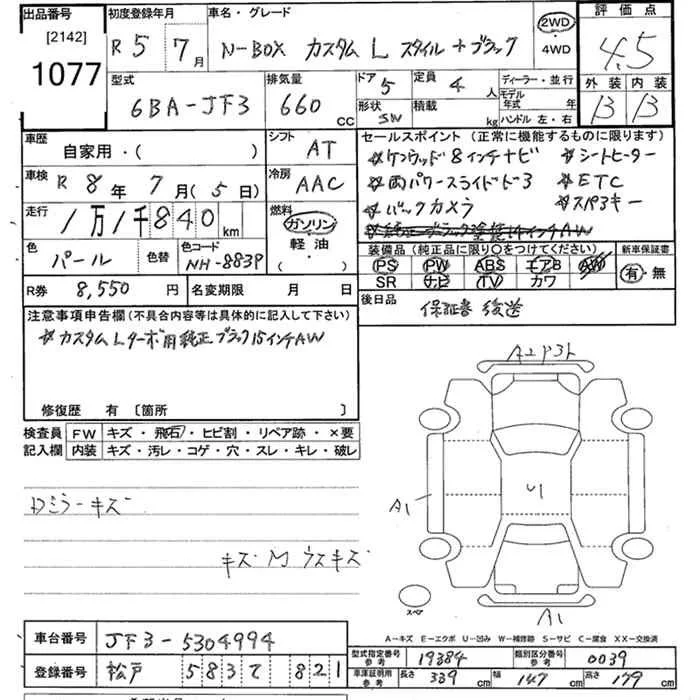 出品番号
[2142]
1077
初度登録年月
R 5 7月
車名・グレード
N-BOX カスタム L スタイル + ブラック
2WD
・
4WD
評価点
4.5
外装 内装
B B
型式
6BA-JF3
排気量
660 cc
ドア 5
形状 SW
定員 4 人
積載 kg
ディーラー・並行
モデル
年式 年
ハンドル 左・右
車歴
自家用・( )
シフト AT
車検 R 8 年 7 月(5 日)
冷房 AAC
走行 1万1千840 km
燃料
ガソリン
軽油
( )
色 パール 色替
色コード
NH-883P
R券 8,550 円
名変期限 月 日
セールスポイント(正常に機能するものに限ります)
☆ケンウッド8インチナビ ☆シートヒーター
☆両パワースライドドア ☆ETC
☆バックカメラ ☆スペアキー
☆純正ブラック塗装14インチAW
装備品(純正品に限り○をつけてください) 新車保証書
PS PW ABS エアB AW
SR ナビ TV カワ
有・無
後日品 保証書 後送
注意事項申告欄(不具合内容等は具体的に記入して下さい)
☆カスタムLターボ用純正ブラック15インチAW
修復歴 有 [箇所 ]
検査員
記入欄
FW キズ・飛石・ヒビ割・リペア跡・×要
内装 キズ・汚レ・コゲ・穴・スレ・キレ・破レ
Dミラーキズ
キズ M ウスキズ
A2
U1
A1
スペア
A1
A-キズ E-エクボ U-凹み W-補修跡 S-サビ C-腐食 XX-交換済
車台番号 JF3-5304994
登録番号 松戸 583 て 821
型式指定番号
参考
19384
類別区分番号
参考
0039
車庫証明用
参考
長さ 339 cm 幅 147 cm 高さ 179 cm